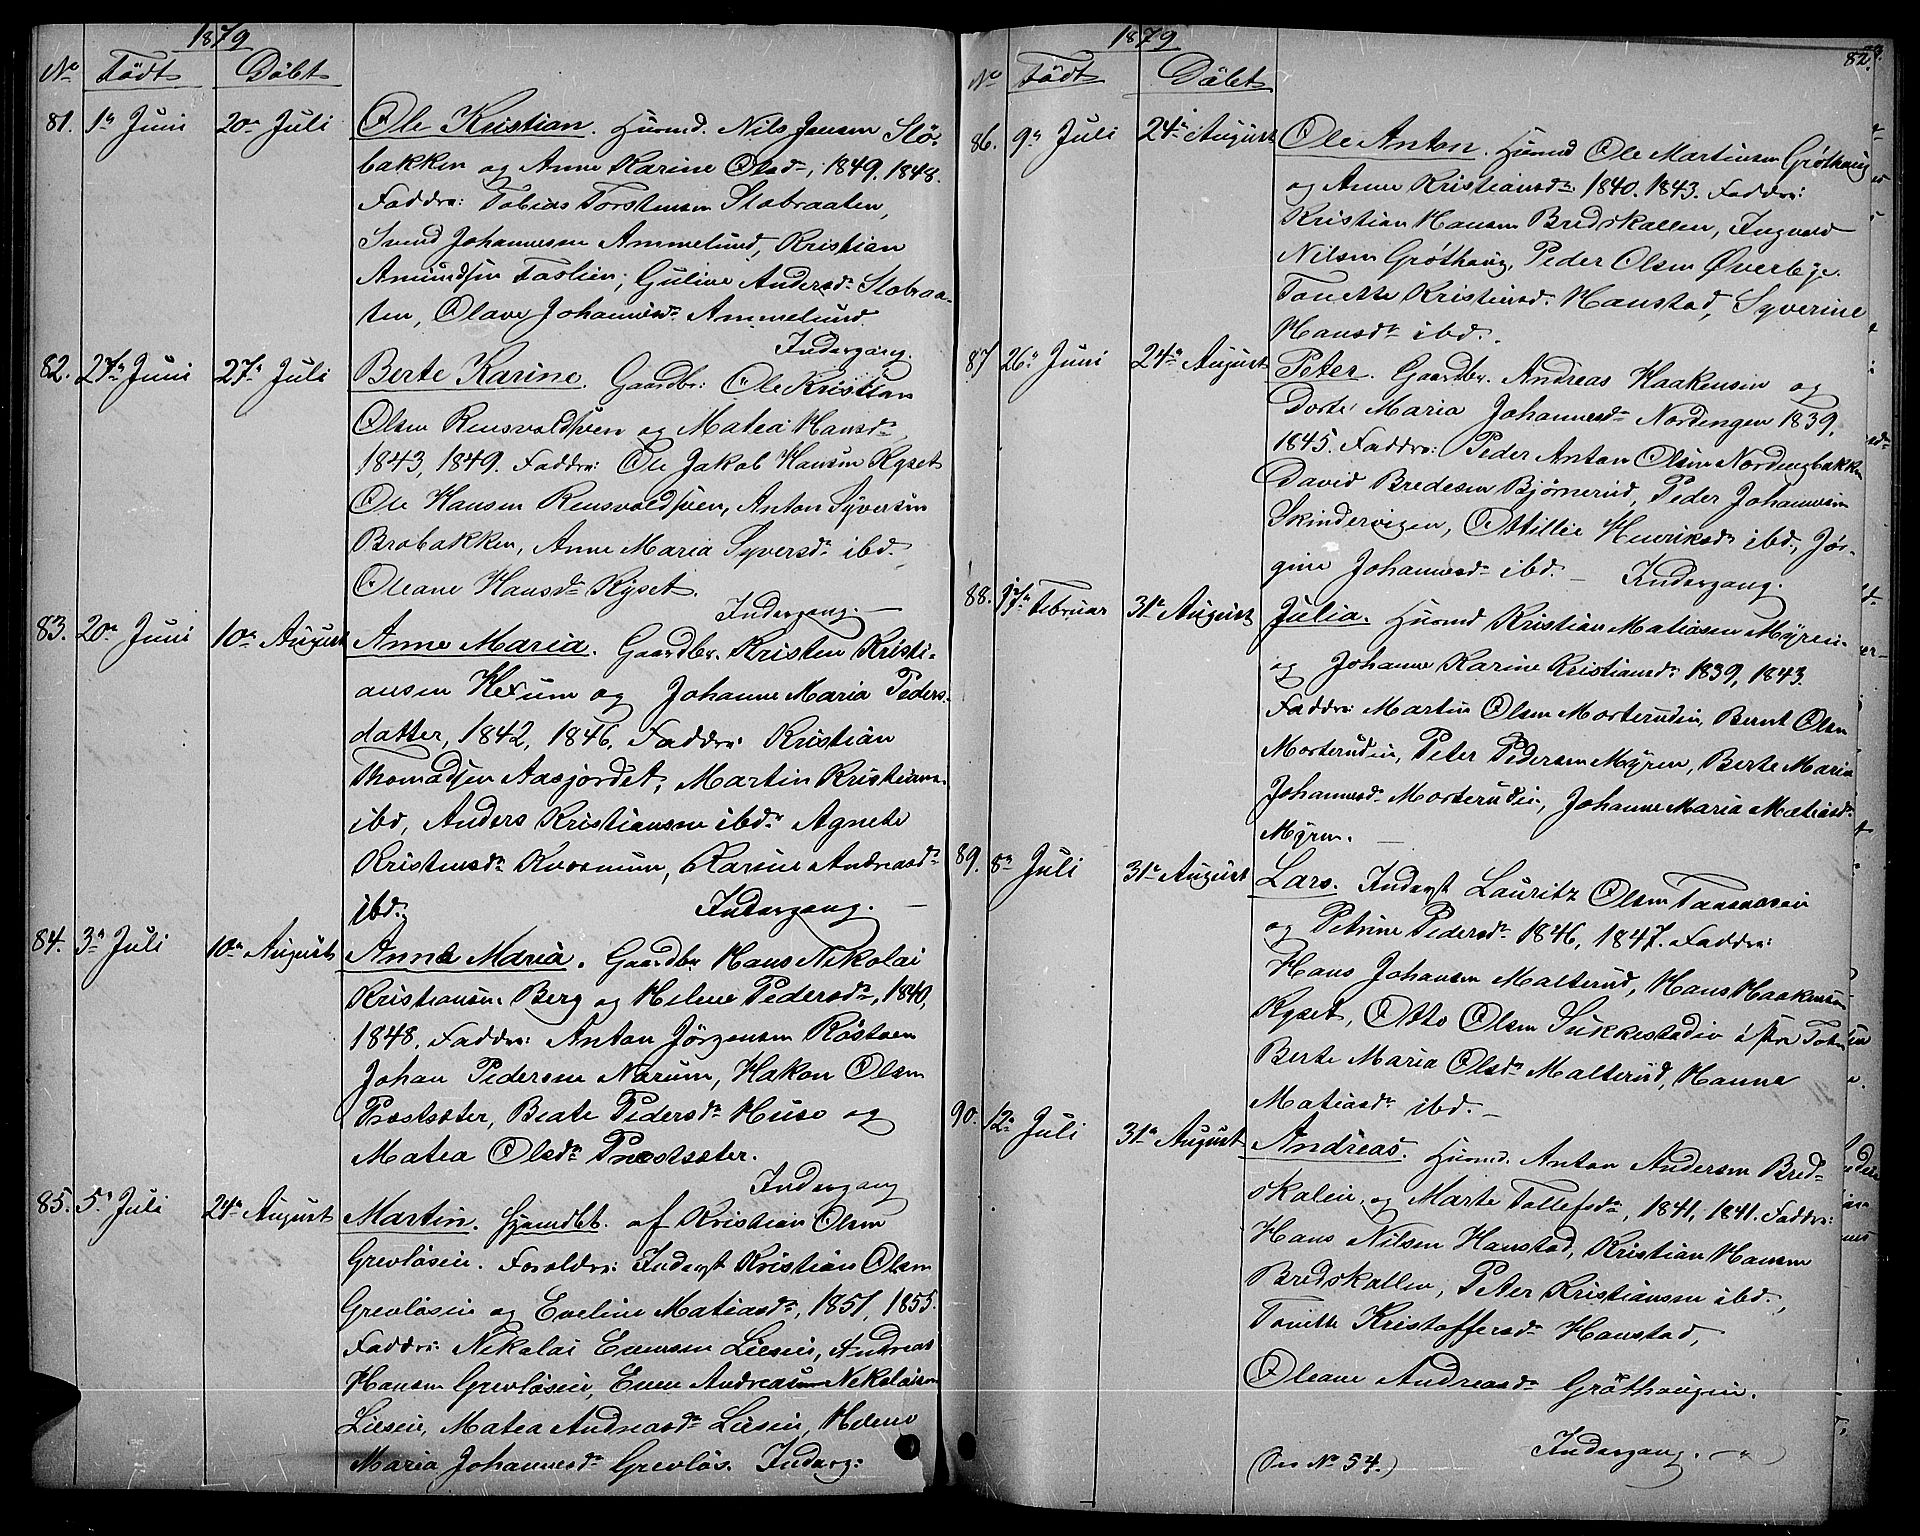 1879
No Födt Döbt
81. 1ste Juni 20de Juli Ole Kristian. Husmd. Nils Jensen Slö-
bakken og Anne Karine Olsd., 1849. 1848.
Faddre: Tobias Torstensen Slobraaten,
Svend Johannesen Ammelund, Kristian
Amundsen Faslien, Guline Andersd. Slobraa-
ten, Olave Johannesd. Ammelund.
Indergang.
82. 27de Juni 27de Juli Berte Karine. Gaardbr: Ole Kristian
Olsen Rensvoldsven og Matea Hansd.
1843, 1849. Faddre: Ole Jakob Hansen Kyset
Ole Hansen Rensvoldsven, Anton Syversen
Brobakken, Anne Maria Syversd. ibd.
Oleane Hansd. Kyset.
Indergang. —
83. 20de Juni 10de August Anne Maria. Gaardbr. Kristen Kristi-
ansen Hexum og Johanne Maria Peders-
datter, 1842, 1846, Faddre: Kristian
Thomassen Aasjordet, Martin Kristians.
ibd, Anders Kristiansen ibd. Agnete
Kristensd. Kvosmun, Karine Andreasd.
ibd. Indergang. —
84. 3de Juli 10de August Anne Maria. Gaardbr Hans Nikolai
Kristiansen Berg og Helene Pedersd., 1840,
1848. Faddre: Anton Jörgensen Röstoen
Johan Pedersen Narum, Hakon Olsen
Præstsæter, Beate Pedersd. Huse og
Matea Olsd. Præstsæter.
Indergang
85. 5te Juli 24de August Martin. Hjemdbt. af Kristian Olsen
Grevlösen. Forældre: Inderst Kristian Olsen
Grevlösen og Eveline Matiasd., 1851, 1855.
Faddre: Nikolai Evensen Liesen, Andreas
Hansen Grevlösen, Even Andreas Nikolaisen
Liesen, Matea Andreasd. Liesen, Helene
Maria Johannesd. Grevlös. Inderg:
1879
82.
No Födt Döbt
86. 9de Juli 24de August Ole Anton. Husmd Ole Martinsen Gröthaug
og Anne Kristiansd. 1840. 1843. Faddre:
Kristian Hansen Bredskallen, Ingvald
Nilsen Gröthaug, Peder Olsen Øverbye.
Tonette Kristensd. Hanstad, Syverine
Hansd. ibd.
87 26de Juni 24de August Peter. Gaardbr. Andreas Haakensen og
Dorte Maria Johannesd. Nordengen 1839.
1845. Faddre: Peder Anton Olsen Nordengbakken
David Bredesen Bjørnerud, Peder Johannesen
Skindervigen, Ottillie Henriksd. ibd., Jør-
gine Johannesd. ibd. — Indergang.
88. 17de Februar 31te August Julia. Husmd Kristian Matiasen Myren
og Johanne Karine Kristiansd. 1839, 1843.
Faddre: Martin Olsen Morteruden, Bernt Olsen
Morteruden, Peter Pedersen Myren, Berte Maria
Johannesd. Morteruden, Johanne Maria Matiasd.
Myren. —
89. 8de Juli 31te August Lars. Inderst Lauritz Olsen
og Petrine Pedersd. 1846, 1847. Faddre:
Hans Johansen Malterud, Hans Haakensen
Kyset, Otto Olsen Sukkestadeiv i Toten
Berte Maria Olsd. Malterud, Hanne
Matiasd. ibd. —
90. 12te Juli 31te August Andreas. Husmd. Anton Andersen Bred-
skalen og Marte Tollefsd., 1841, 1841. Faddre:
Hans Nilsen Hanstad, Kristian Hansen
Bredskallen, Peter Kristiansen ibd.,
Tonette Kristoffersd. Hanstad,
Oleane Andreasd. Gröthaugen.
Indergang. —
No 54.)